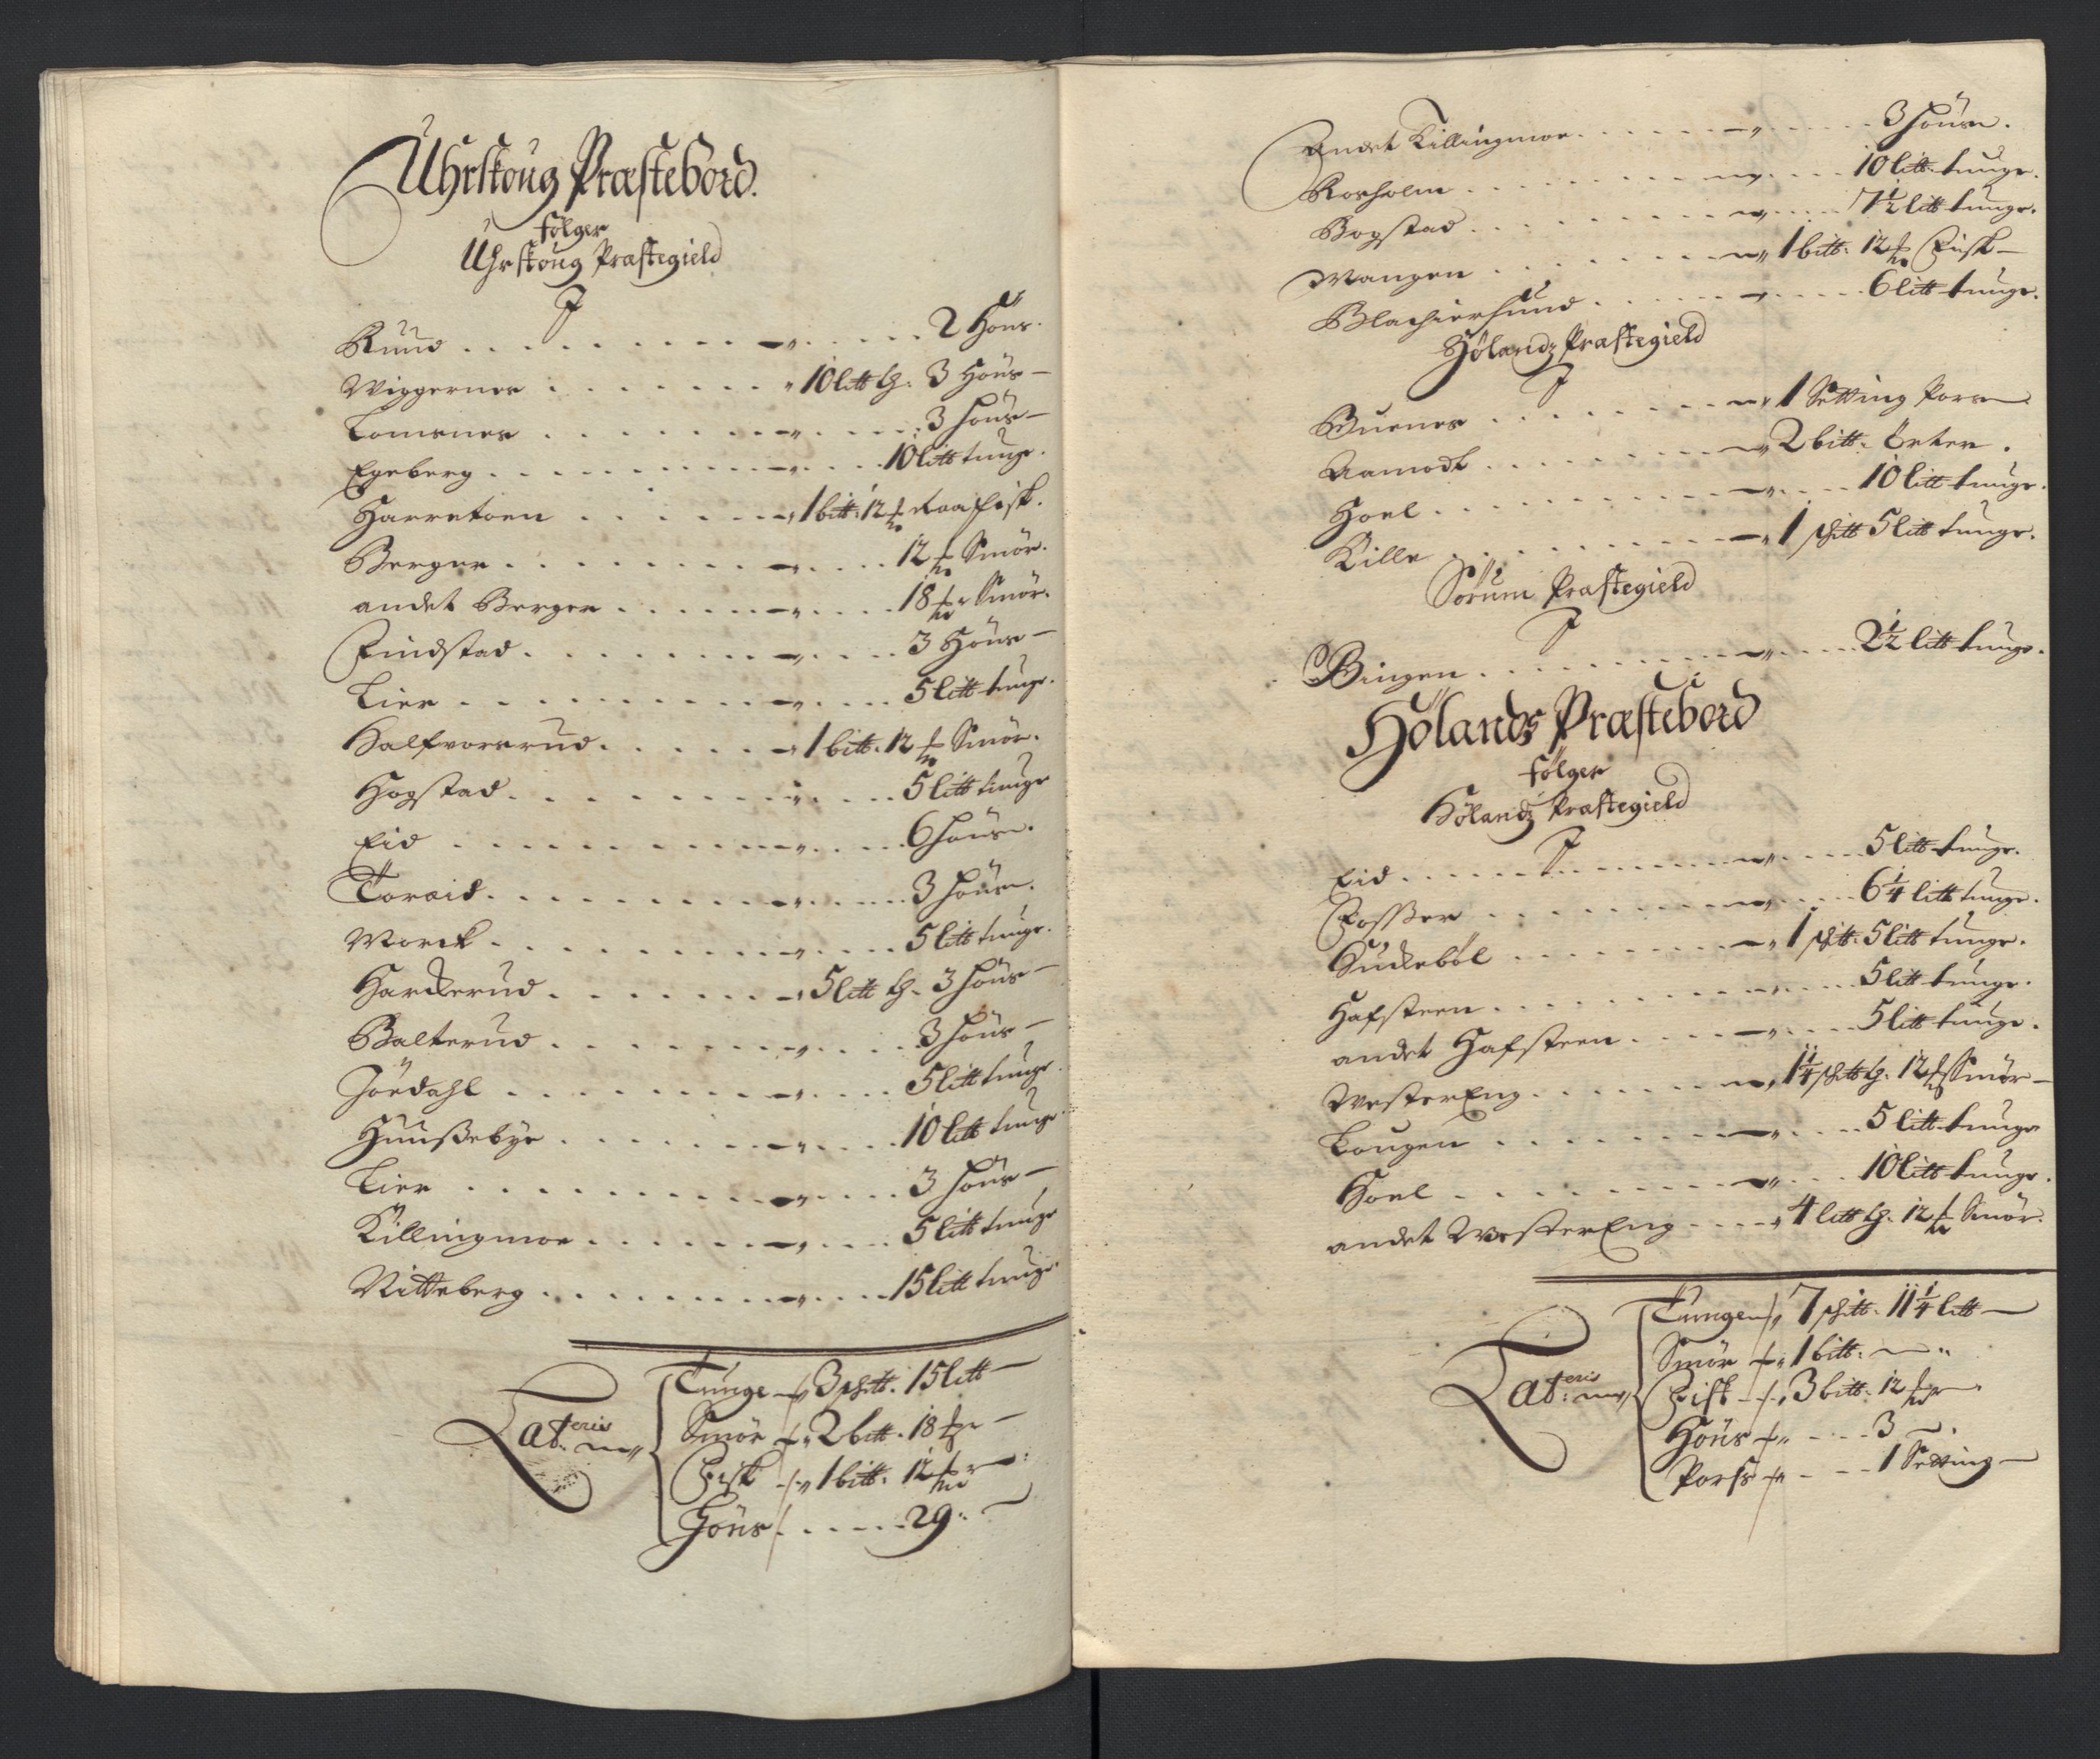 Uhrskoug Præstebord.
følger
Uhrskoug Præstegield
J
Ruud . . . . . . . . 2 Høns.
Wiggernes . . . . . . . 10 litt tg. 3 Høns
Lomsnes . . . . . . . 3 Høns
Egeberg . . . . . . . 10 litt tunge.
Harretoen . . . . . . 1 bitt: 12 Raafisk.
Berger . . . . . . . . 12 Smör.
andet Berger . . . . . 18 Smör.
Findstad . . . . . . . 3 Høns
Lier . . . . . . . . . 5 litt tunge.
Halfvorsrud . . . . . 1 bitt. 12 Smör.
Hogstad . . . . . . . 5 litt tunge
Eid . . . . . . . . . 6 Høns.
Toreid . . . . . . . . 3 Høns.
Morck . . . . . . . . 5 litt tunge.
Harckerud . . . . . . 5 litt tg. 3 Høns
Balterud . . . . . . . 3 Høns
Jördahl . . . . . . . 5 litt tunge.
Huusebye . . . . . . . 10 litt tunge
Lier . . . . . . . . . 3 Høns
Killingmoe . . . . . . 5 litt tunge
Nitteberg . . . . . . 15 litt tunge
Lateris
Tunge 3 schitt. 15 litt
Smör 2 bitt. 18
Fisk 1 bitt: 12
Höns . . . . . 29.
Andet Killingmoe . . . . . 3 Höns.
Korsholm . . . . . . . 10 litt tunge.
Bogstad . . . . . . . 7 1/2 litt tunge.
Mangen . . . . . . . 1 bitt: 12 Fisk
Blachiersund . . . . . 6 litt tunge.
Hølandz Præstegield
J
Buenes . . . . . . . 1 Setting Pors
Aamodt . . . . . . . 2 bitt. Örter.
Hoel . . . . . . . . 10 litt tunge.
Kille . . . . . . . . 1 schitt 5 litt tunge.
Sörum Præstegield
J
Bingen . . . . . . . 2 1/2 litt tunge.
Hölands Præstebord
følger
Hölandz Præstegield
J
Eid . . . . . . . . . 5 litt tunge.
Fosser . . . . . . . 6 1/4 litt tunge.
Huckeböl . . . . . . 1 schitt. 5 litt tunge.
Hafsteen . . . . . . 5 litt tunge.
andet Hafsteen . . . . 5 litt tunge.
WesterEng . . . . . . 1 1/4 schitt tg. 12 Smör
Lougen . . . . . . . 5 litt tunge
Hoel . . . . . . . . 10 litt tunge.
andet WesterEng . . . 4 litt tg. 12 Smör.
Lateris
Tungen 7 schitt. 11 1/4 litt
Smör 1 bitt:
Fisk 3 bitt. 12
Höns . . . 3
Porss . . . 1 Setting